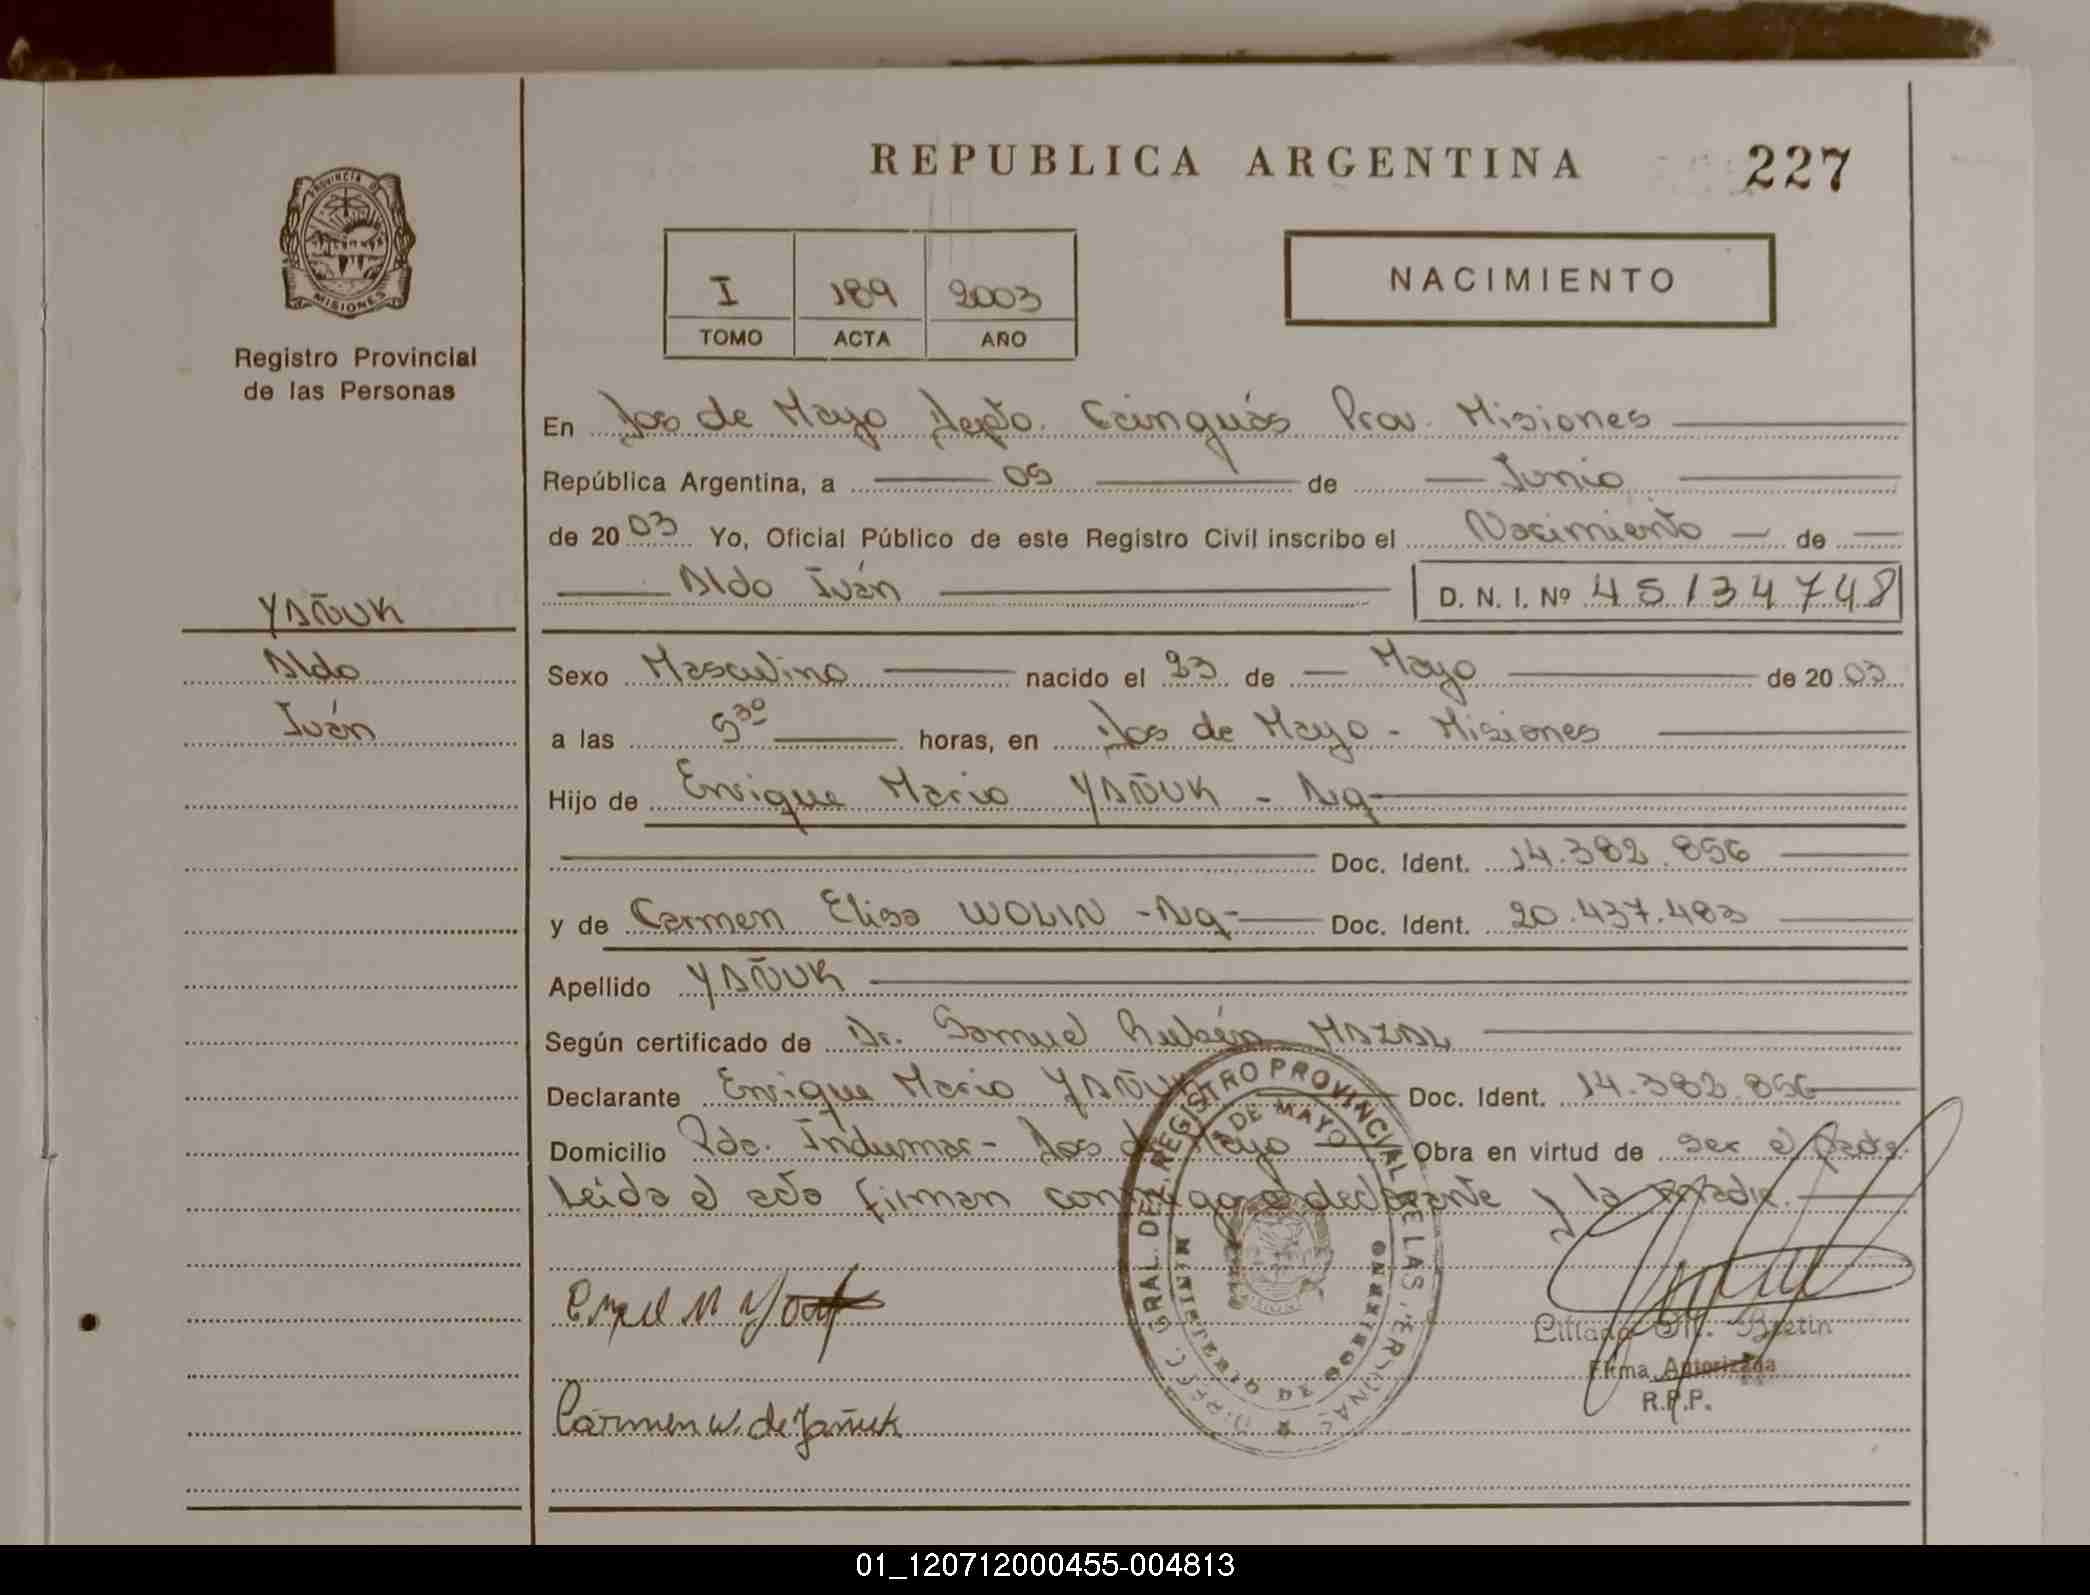 REPUBLICA ARGENTINA 227
PROVINCIA DE
MISIONES
Registro Provincial
de las Personas
I 189 2003
TOMO ACTA AÑO
NACIMIENTO
En Dos de Mayo Depto. Cainguás Prov. Misiones
República Argentina, a 05 de Junio
de 2003 Yo, Oficial Público de este Registro Civil inscribo el Nacimiento de
Aldo Iván D. N. I. Nº 45134748
YAÑUK
Aldo
Iván
Sexo Masculino nacido el 23 de Mayo de 2003
a las 5³⁰ horas, en Dos de Mayo - Misiones
Hijo de Enrique Mario YAÑUK - Arg -
Doc. Ident. 14.382.856
y de Carmen Elisa WOLIN - Arg - Doc. Ident. 20.437.483
Apellido YAÑUK
Según certificado de Dr. Samuel Rubén MAZAL
Declarante Enrique Mario YAÑUK Doc. Ident. 14.382.856
Domicilio Pdc. Indumar - Dos de Mayo Obra en virtud de ser el padre.
Leída el acta firman conmigo el declarante y la madre.
DIREC. GRAL. DEL REGISTRO PROVINCIAL DE LAS PERSONAS
DE MAYO
MINISTERIO DE GOBIERNO
MISIONES
Carmen W. de Yañuk
Liliana M. Bretin
Firma Autorizada
R.P.P.
01_120712000455-004813